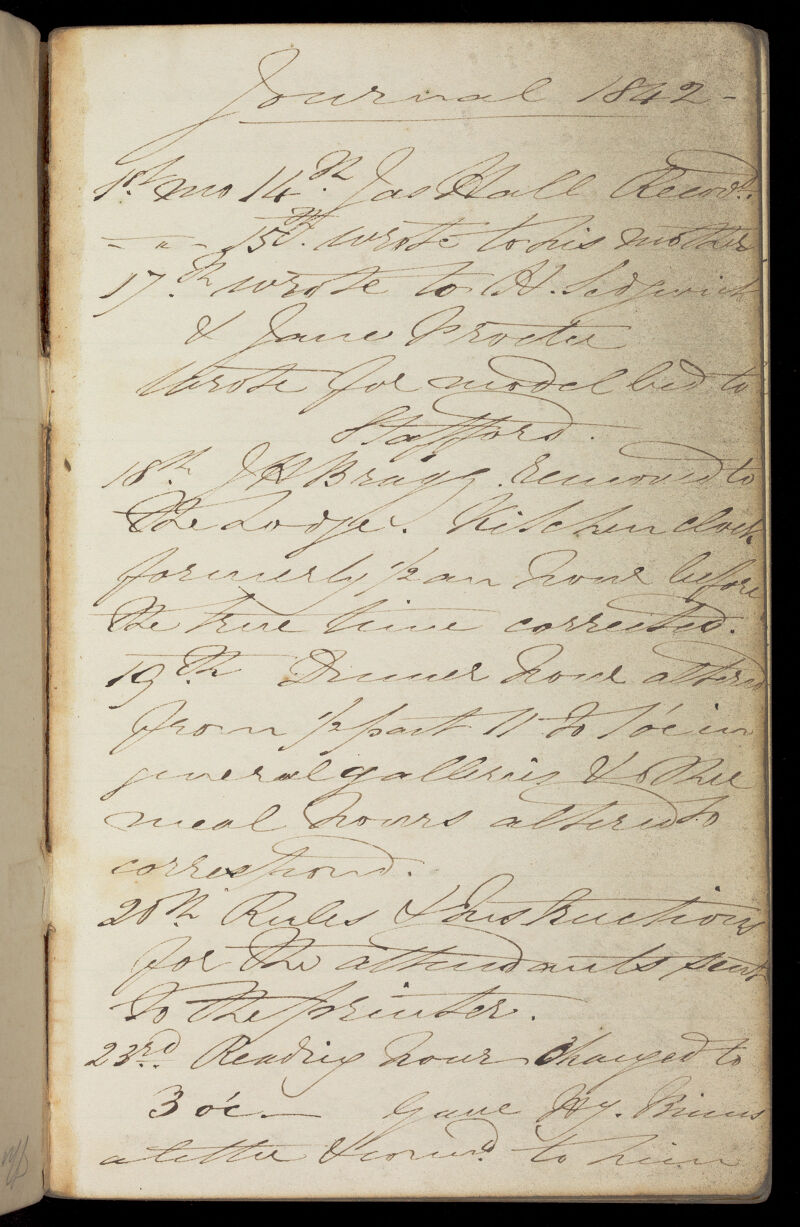 Journal 1842 -
1st mo 14th Jas Hall Recovd.
- " - 15th. wrote to his mother
17th wrote to H. Sedgwick
& Jane Procter
Wrote for model bed to
Stafford.
18th J H Bragg removed to
the Lodge. Kitchen clock
formerly 1/2 an hour before
the true time corrected.
19th Dinner hour altered
from 1/2 past 11 to 1 o'c in
general galleries & other
meal hours altered to
correspond.
20th Rules & Instructions
for the attendants sent
to the printer.
23rd Reading hour changed to
3 o'c. — Gave Hy.
a letter & to him